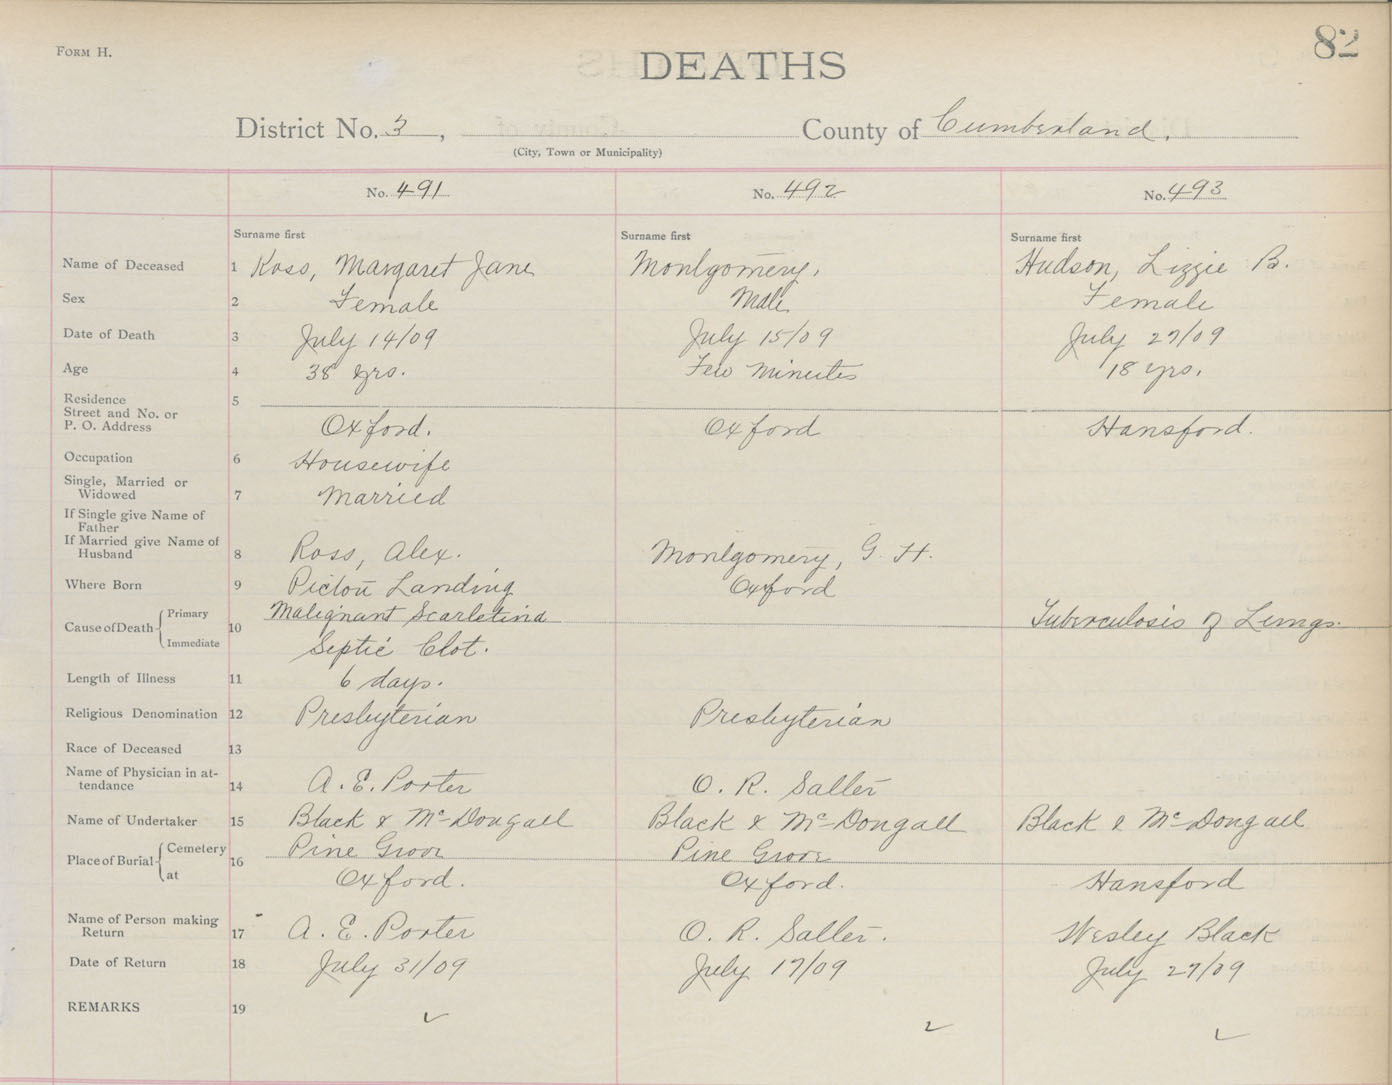 82
FORM H.
DEATHS
District No. 3, County of Cumberland.
(City, Town or Municipality)
No. 491 No. 492 No. 493
Surname first Surname first Surname first
Name of Deceased 1 Ross, Margaret Jane Montgomery, Hudson, Lizzie B.
Sex 2 Female Male Female
Date of Death 3 July 14/09 July 15/09 July 27/09
Age 4 38 yrs. Few Minutes 18 yrs.
Residence 5
Street and No. or
P. O. Address Oxford. Oxford Hansford.
Occupation 6 Housewife
Single, Married or
Widowed 7 Married
If Single give Name of
Father
If Married give Name of
Husband 8 Ross, Alex. Montgomery, G. H.
Where Born 9 Pictou Landing Oxford
Cause of Death Primary 10 Malignant Scarletina Tuberculosis of Lungs.
Immediate Septic Clot.
Length of Illness 11 6 days.
Religious Denomination 12 Presbyterian Presbyterian
Race of Deceased 13
Name of Physician in at-
tendance 14 A. E. Porter O. R. Salter
Name of Undertaker 15 Black & McDougall Black & McDougall Black & McDougall
Place of Burial Cemetery 16 Pine Grove Pine Grove
at Oxford. Oxford. Hansford
Name of Person making
Return 17 A. E. Porter O. R. Salter. Wesley Black
Date of Return 18 July 31/09 July 17/09 July 27/09
REMARKS 19